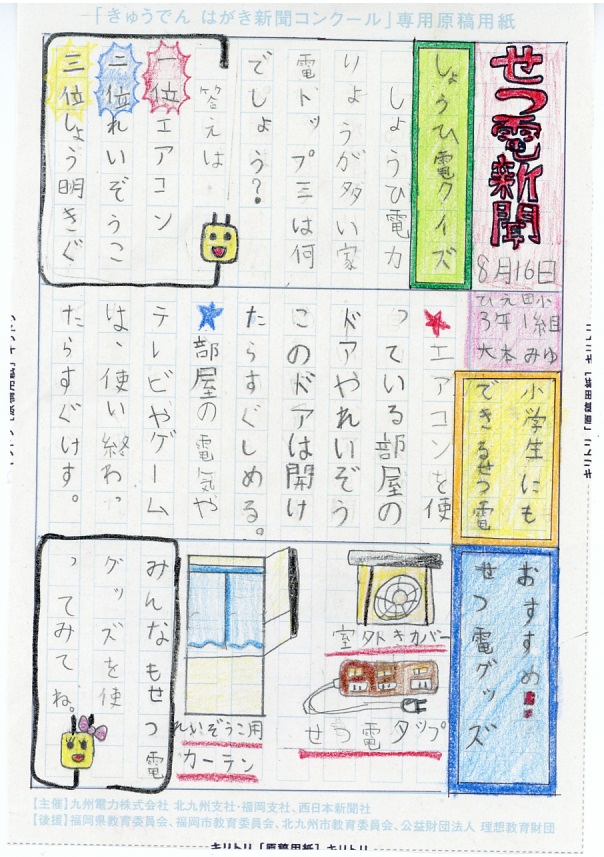 「きゅうでん はがき新聞コンクール」専用原稿用紙
せつ電新聞
8月16日
小組
田1
元年
ひろ大本みゆ
しょうひ電クイズ
しょうひ電力
りょうが多い家
電トップ三は何
でしょう?
答えは
一位エアコン
二位れいぞうこ
三位しょう明きぐ
小学生にも
できるせつ電
★エアコンを使
っている部屋の
ドアやれいぞう
このドアは開け
たらすぐしめる。
★部屋の電気や
テレビやゲーム
は、使い終わっ
たらすぐけす。
おすすめ
せつ電グッズ
室外きカバー
せつ電タップ
れいぞうこ用
カーテン
みんなもせつ電
グッズを使
ってみてね。
【主催】九州電力株式会社 北九州支社・福岡支社、西日本新聞社
【後援】福岡県教育委員会、福岡市教育委員会、北九州市教育委員会、公益財団法人 理想教育財団
キリトリ [原稿用紙] キリトリ